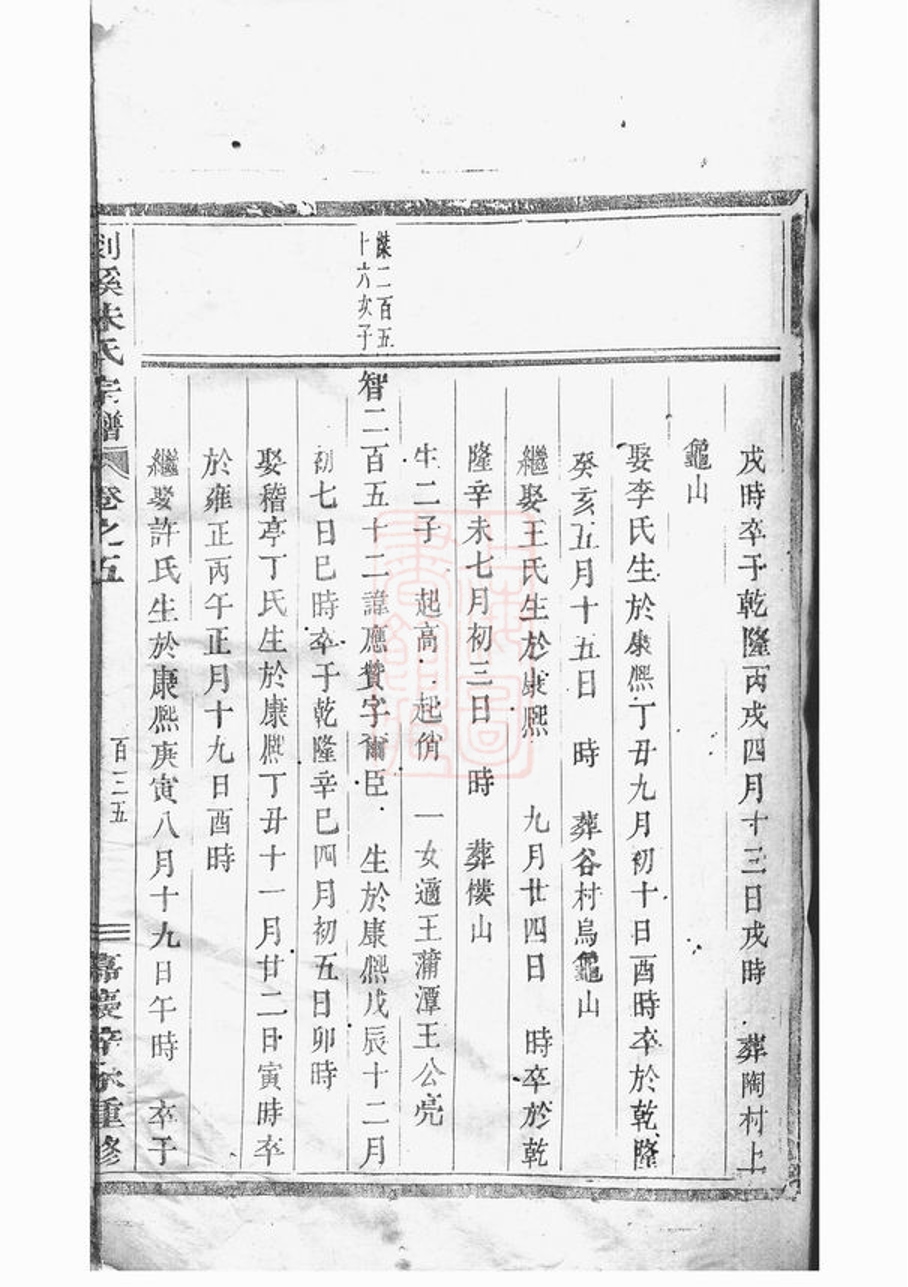 戌時卒于乾隆丙戌四月十三日戌時 葬陶村上
龜山
娶李氏生於康熙丁丑九月初十日酉時卒於乾隆
癸亥五月十五日 時 葬谷村烏龜山
繼娶王氏生於康熙 九月廿四日 時卒於乾
隆辛未七月初三日 時 葬樓山
生二子 起高 起俏 一女適王蒲潭王公亮
二百五
十六次子
智二百五十二諱應贊字爾臣 生於康熙戊辰十二月
初七日巳時卒于乾隆辛巳四月初五日卯時
娶稽亭丁氏生於康熙丁丑十一月廿二日寅時卒
於雍正丙午正月十九日酉時
繼娶許氏生於康熙庚寅八月十九日午時 卒于
剡溪朱氏宗譜 卷之五 百三五 嘉慶辛未重修
上海圖書館藏